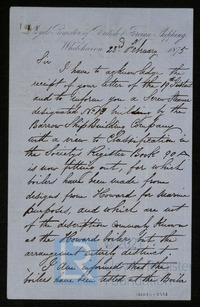 Lloyd's Register of British & Foreign Shipping
Whitehaven 23rd February 1875
Sir
I have to acknowledge the
receipt of your letter of the 19th Instant
and to inform you a Screw Steamer
designated No 13 building by the
Barrow Shipbuilding Company
with a view to Classification in
the Society's Register Book 90A
is now fitted out, for which
boilers have been made from
designs from Howard for Marine
Purposes, and which are not
of the description commonly known
as the Howard boiler, but the
arrangement entirely distinct
I am informed that the
boilers have been tested at the Boiler